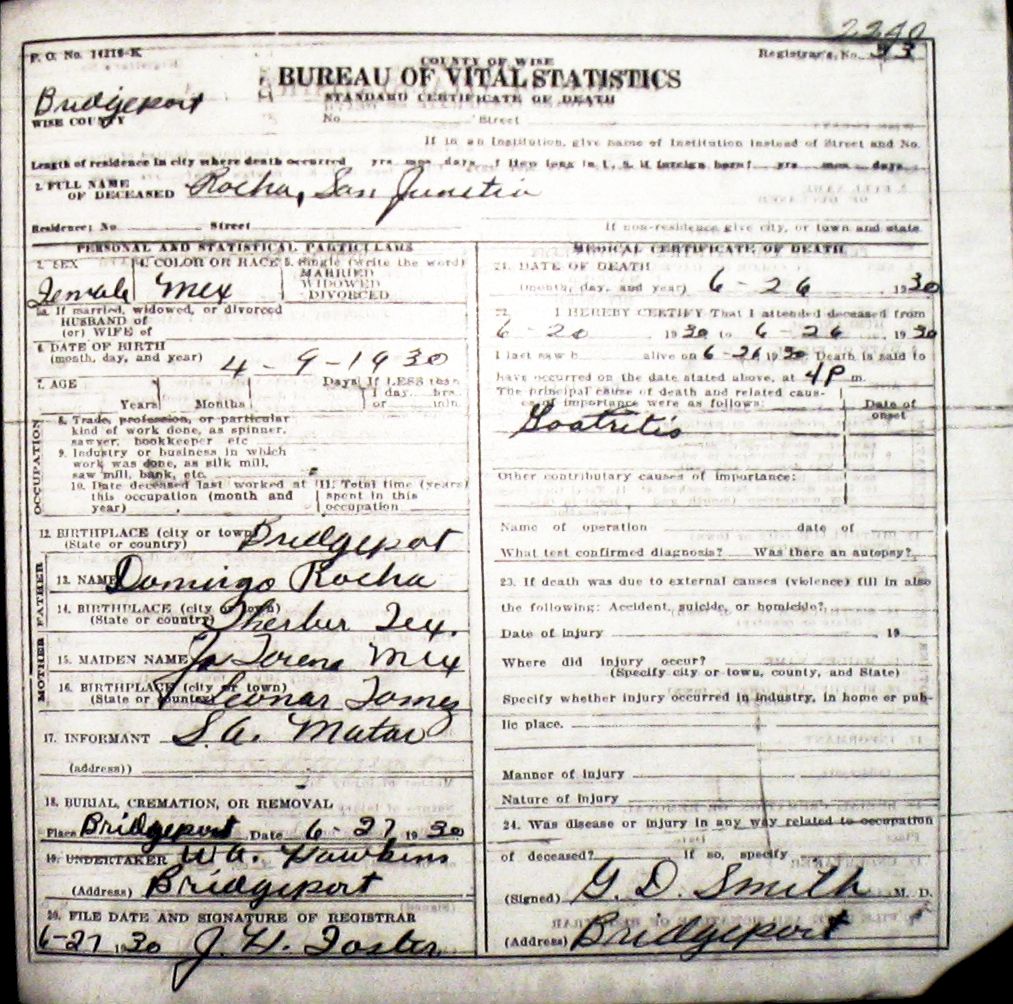 2240
F. O. No. 14216-K
Registrar's No. 53
COUNTY OF WISE
BUREAU OF VITAL STATISTICS
STANDARD CERTIFICATE OF DEATH
Bridgeport
WISE COUNTY
No Street
If in an Institution, give name of Institution instead of Street and No.
Length of residence in city where death occurred yrs mos days. How long in U. S. if foreign born? yrs mos days
2. FULL NAME OF DECEASED Rocha, San Juanetia
Residence: No Street If non-residence give city, or town and state
PERSONAL AND STATISTICAL PARTICULARS
3. SEX Female
4. COLOR OR RACE Mex
5. Single (write the word) MARRIED WIDOWED DIVORCED
5a. If married, widowed, or divorced
HUSBAND of
(or) WIFE of
6. DATE OF BIRTH
(month, day, and year) 4-9-1930
7. AGE Years Months Days If LESS than 1 day hrs. or min.
8. Trade, profession, or particular
kind of work done, as spinner,
sawyer, bookkeeper etc
9. Industry or business in which
work was done, as silk mill,
saw mill, bank, etc.
10. Date deceased last worked at
this occupation (month and
year)
11. Total time (years)
spent in this
occupation
OCCUPATION
12. BIRTHPLACE (city or town) Bridgeport
(State or country)
FATHER
13. NAME Domingo Rocha
14. BIRTHPLACE (city or town)
(State or country) Therber Tex.
MOTHER
15. MAIDEN NAME Torena Mex
16. BIRTHPLACE (city or town)
(State or country) Leonar Tomez
17. INFORMANT S.A. Matar
(address))
18. BURIAL, CREMATION, OR REMOVAL
Place Bridgeport Date 6-27 1930
19. UNDERTAKER W.A. Hawkins
(Address) Bridgeport
20. FILE DATE AND SIGNATURE OF REGISTRAR
6-27 1930 J. H. Foster
MEDICAL CERTIFICATE OF DEATH
21. DATE OF DEATH
(month, day, and year) 6-26, 1930
22. I HEREBY CERTIFY That I attended deceased from
6-20 1930 to 6-26, 1930
I last saw h alive on 6-26 1930. Death is said to
have occurred on the date stated above, at 4P m.
The principal cause of death and related causes of importance were as follows:
Date of onset
Gastritis
Other contributary causes of importance:
Name of operation date of
What test confirmed diagnosis? Was there an autopsy?
23. If death was due to external causes (violence) fill in also
the following: Accident, suicide, or homicide?
Date of injury , 19
Where did injury occur?
(Specify city or town, county, and State)
Specify whether injury occurred in industry, in home or pub-
lic place.
Manner of injury
Nature of injury
24. Was disease or injury in any way related to occupation
of deceased? If so, specify
(Signed) G. D. Smith M. D.
(Address) Bridgeport